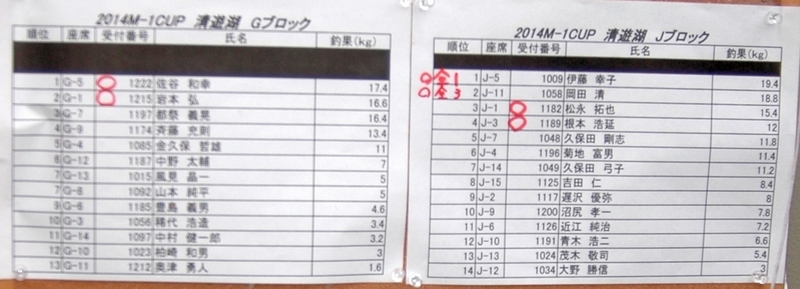 2014M-1CUP 清遊湖 Gブロック
順位 座席 受付番号 氏名 釣果(kg)
1 G-5 1222 佐谷 和幸 17.4
2 G-1 1215 岩本 弘 16.6
3 G-7 1197 都祭 義晃 16.4
4 G-9 1174 斉藤 充則 13.4
5 G-4 1085 金久保 哲雄 11
6 G-12 1187 中野 太輔 7
7 G-13 1015 風見 晶一 5
7 G-8 1092 山本 純平 5
9 G-6 1185 豊島 義男 4.6
10 G-3 1056 稀代 浩造 3.4
11 G-14 1097 中村 健一郎 3.2
12 G-10 1023 柏崎 和男 3
13 G-11 1212 奥津 勇人 1.6
2014M-1CUP 清遊湖 Jブロック
順位 座席 受付番号 氏名 釣果(kg)
全1 1 J-5 1009 伊藤 幸子 19.4
全3 2 J-11 1058 岡田 清 18.8
3 J-1 1182 松永 拓也 15.4
4 J-3 1189 根本 浩延 12
5 J-7 1048 久保田 剛志 11.8
6 J-4 1196 菊地 富男 11.4
7 J-14 1049 久保田 弓子 11.2
8 J-15 1125 吉田 仁 8.4
9 J-2 1117 遅沢 優弥 8
10 J-9 1200 沼尻 孝一 7.8
11 J-6 1126 近江 純治 7.2
12 J-10 1191 青木 浩二 6.6
13 J-13 1024 茂木 敬司 5.4
14 J-12 1034 大野 勝信 3